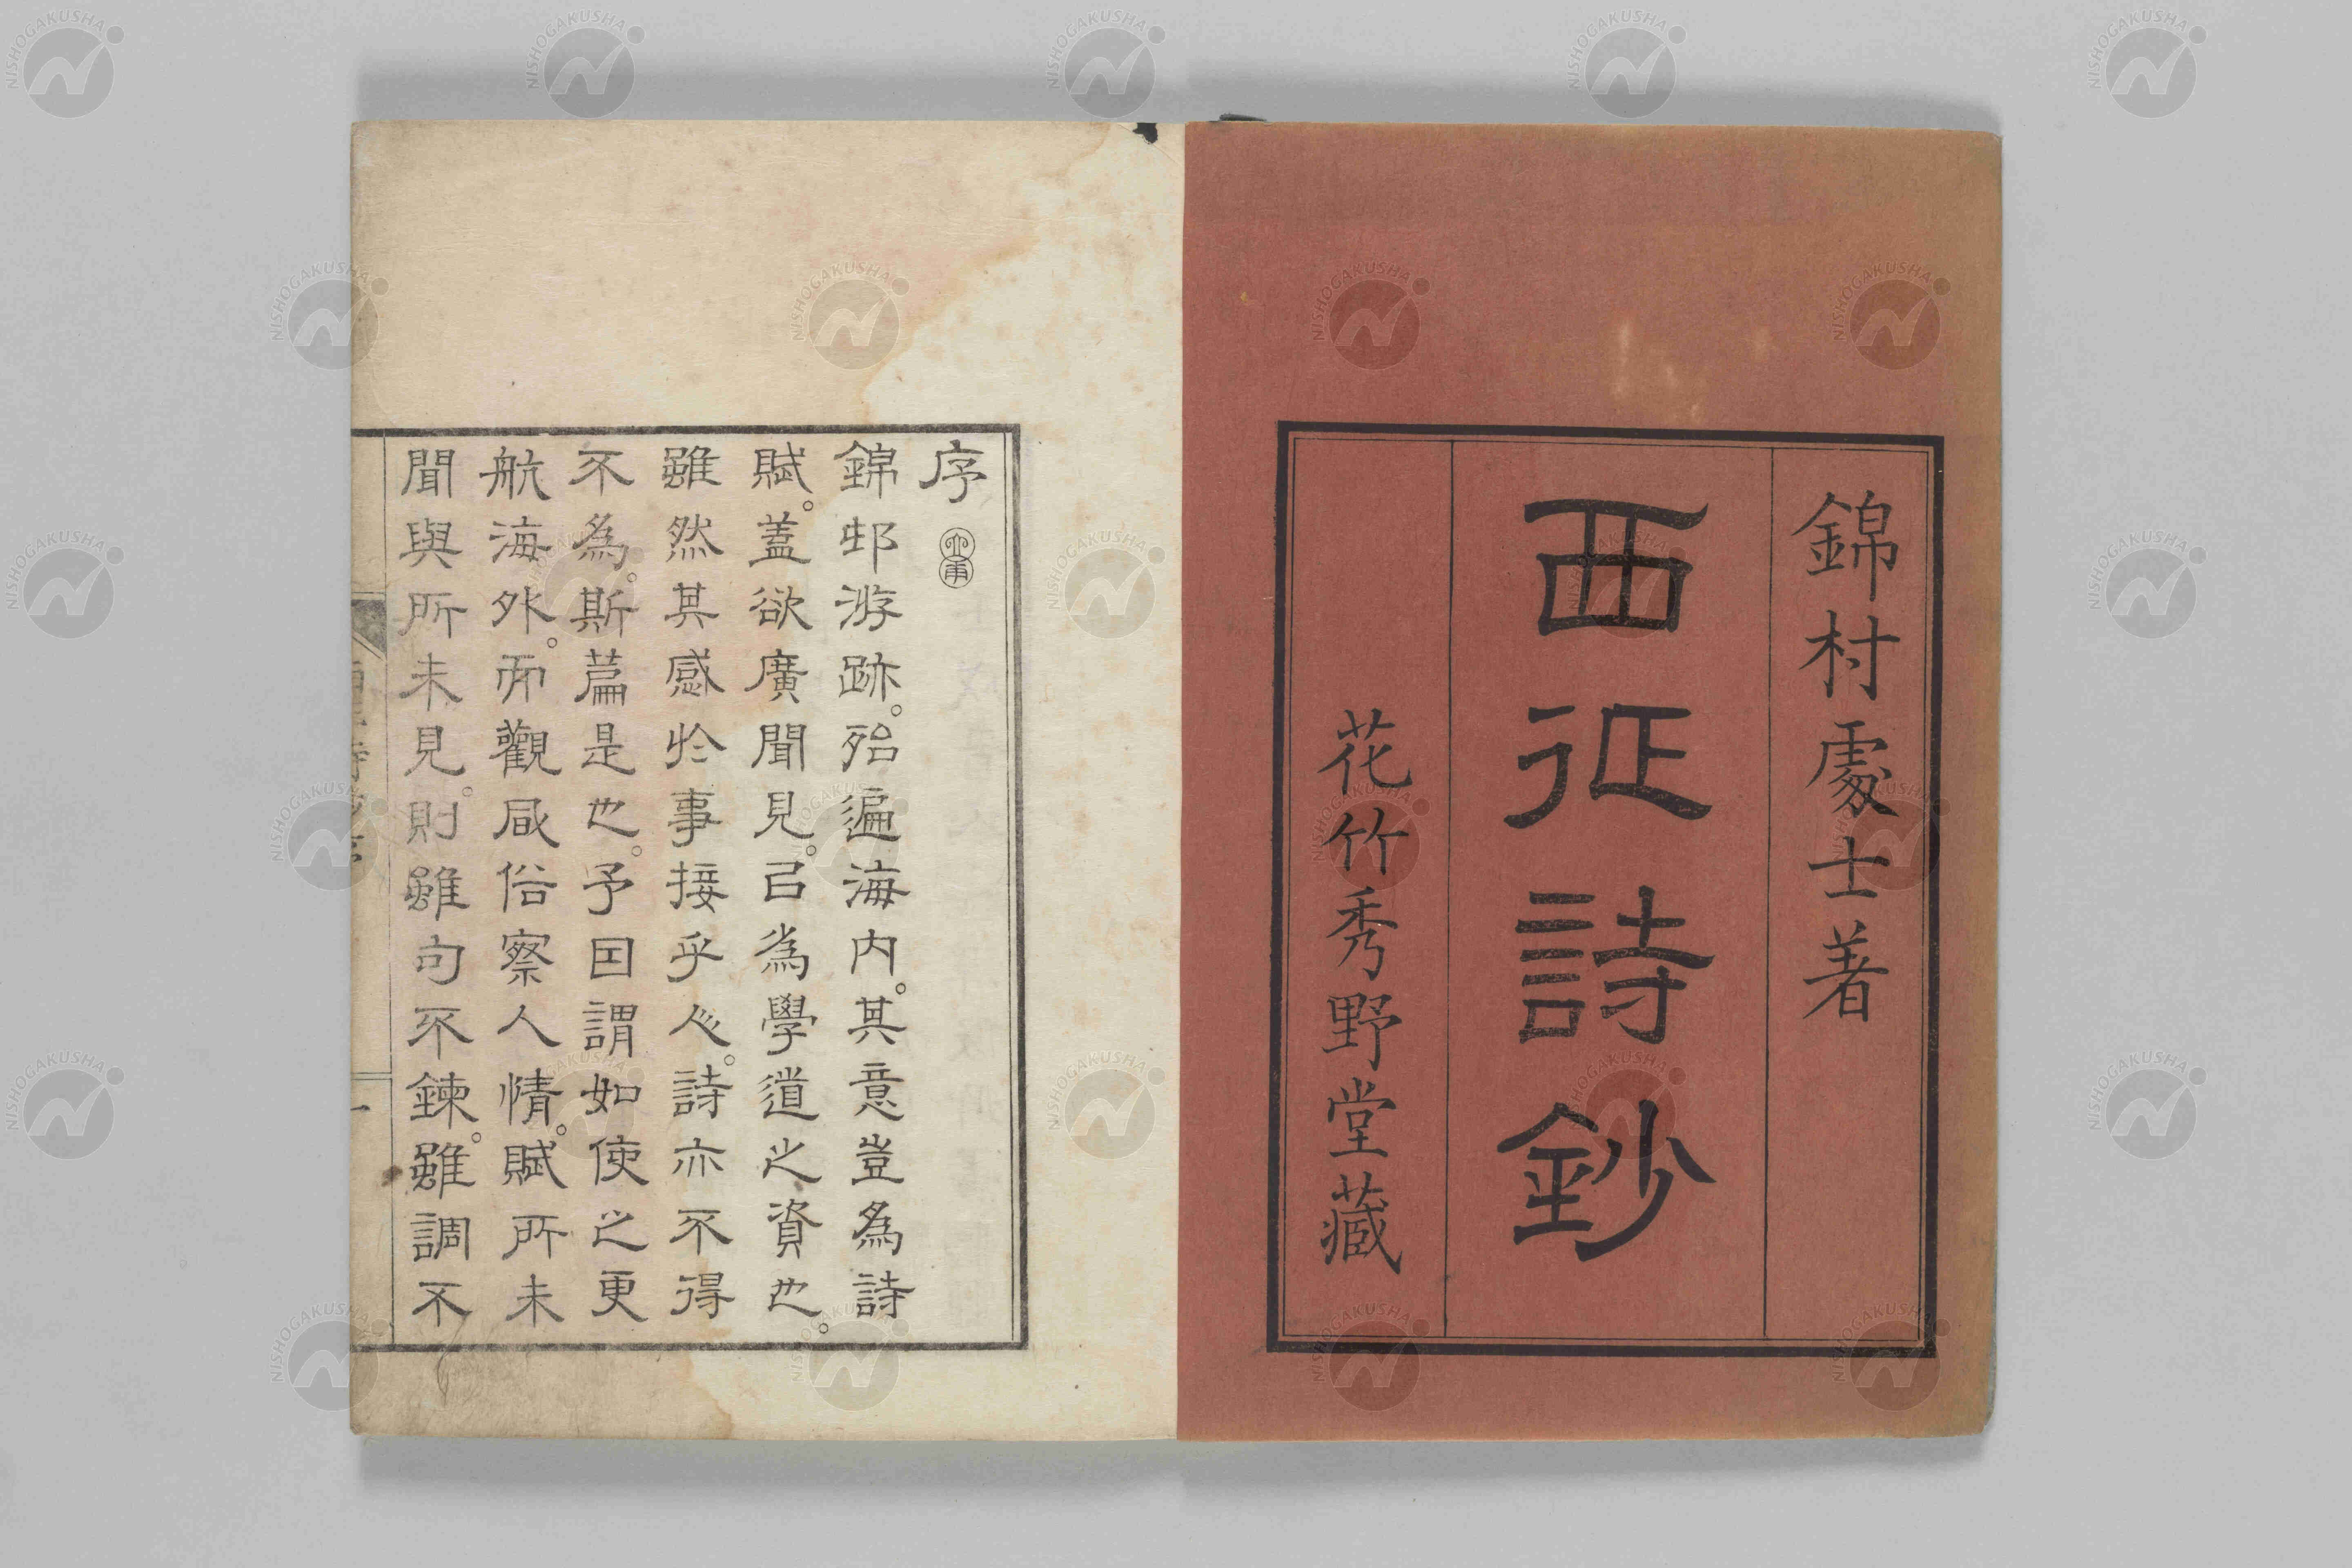 錦村處士著
西征詩鈔
花竹秀野堂藏
序
錦邨游跡。殆遍海内。其意豈為詩
賦。蓋欲廣聞見。㠯為學道之資也。
雖然其感於事接乎心。詩亦不得
不為。斯篇是也。予因謂如使之更
航海外。而觀風俗察人情。賦所未
聞與所未見。則雖句不鍊。雖調不
一
NISHOGAKUSHA